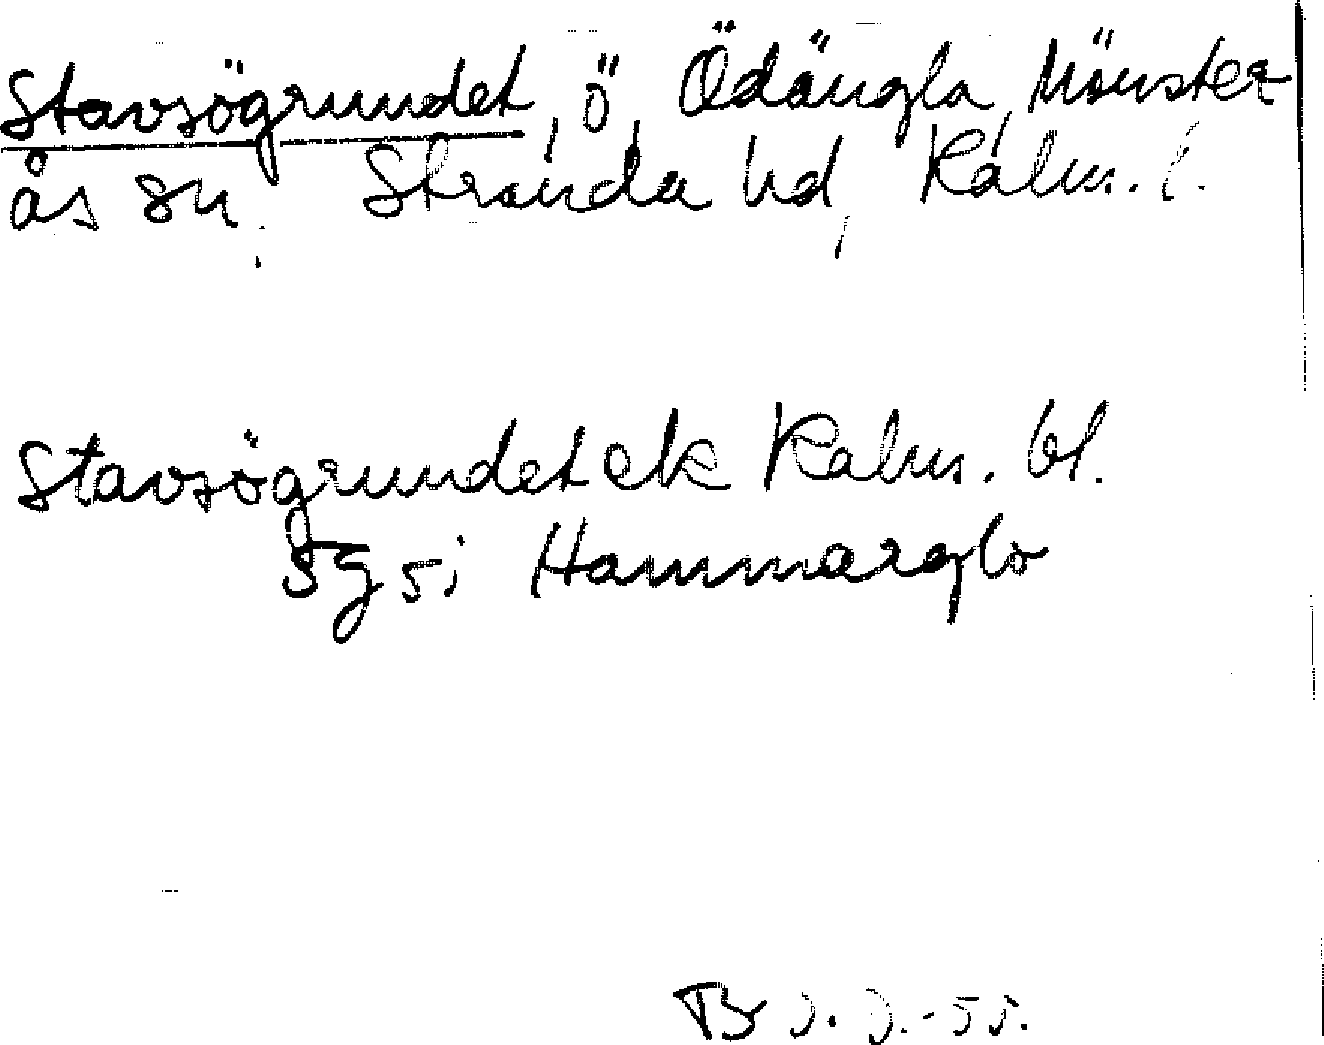 Stavsögrundet, ö, Ödängla, Mönster
ås sn, Stranda hd, Kalm. l.
Stavsögrundet ek Kalm. bl.
5g5i Hammarglo